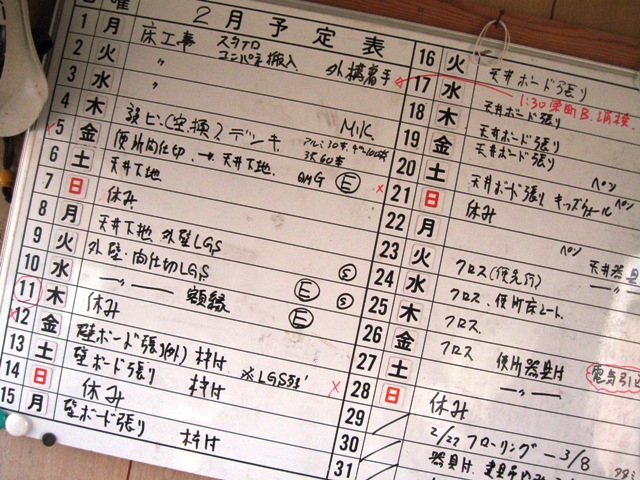 曜
2月予定表
1 月 床工事 スタイロ
コンパネ搬入 外構着手
2 火 〃
3 水 〃
4 木
5 金 設ビ(空換)デンキ M.K.
6 土 便所間仕切 → 天井下地
35 60本
7 日 天井下地 E
休み
8 月
9 火 天井下地 外壁LGS
10 水 外壁・間仕切LGS S
11 木 〃 額縁 E S
12 金 休み E
13 土 壁ボード張り(外) 枠付
14 日 壁ボード張り 枠付 ※LGS
休み
15 月 壁ボード張り 枠付
16 火 天井ボード張り
17 水
1:30
18 木 天井ボード張り
19 金 天井ボード張り
20 土 天井ボード張り ペン
21 日 天井ボード張り キッズウォール ペン
22 月 休み
23 火 ペン 天井器具
24 水 クロス(便先行) 〃
25 木 クロス、便所床シート
26 金 クロス
27 土 クロス 便所器具付
28 日 〃 電気引込
29 休み
30 2/22 フローリング ー 3/8
31 器具付